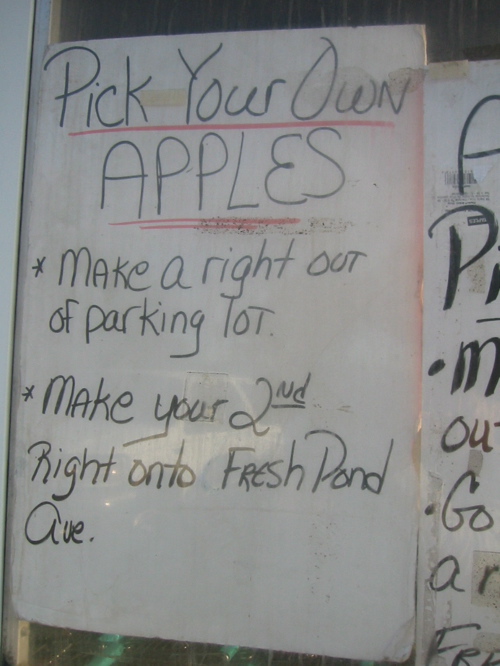 Pick Your Own
APPLES
* MAke a right out
of parking lot.
* MAke your 2nd
Right onto FResh Pond
Ave.
A
Pi
• m
out
• Go
a r
FRe